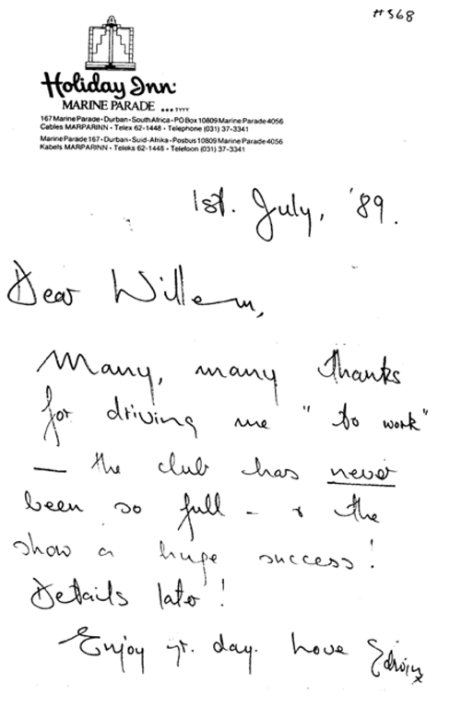 #568
Holiday Inn
MARINE PARADE ★★★TYYY
167 Marine Parade - Durban - South Africa - PO Box 10809 Marine Parade 4056
Cables MARPARINN - Telex 62-1448 - Telephone (031) 37-3341
Marine Parade 167 - Durban - Suid-Afrika - Posbus 10809 Marine Parade 4056
Kabels MARPARINN - Teleks 62-1448 - Telefoon (031) 37-3341
1st. July, '89.
Dear Willem,
Many, many thanks
for driving me "to work"
— the club has never
been so full - & the
show a huge success!
Details later!
Enjoy yr. day. Love Edwin x